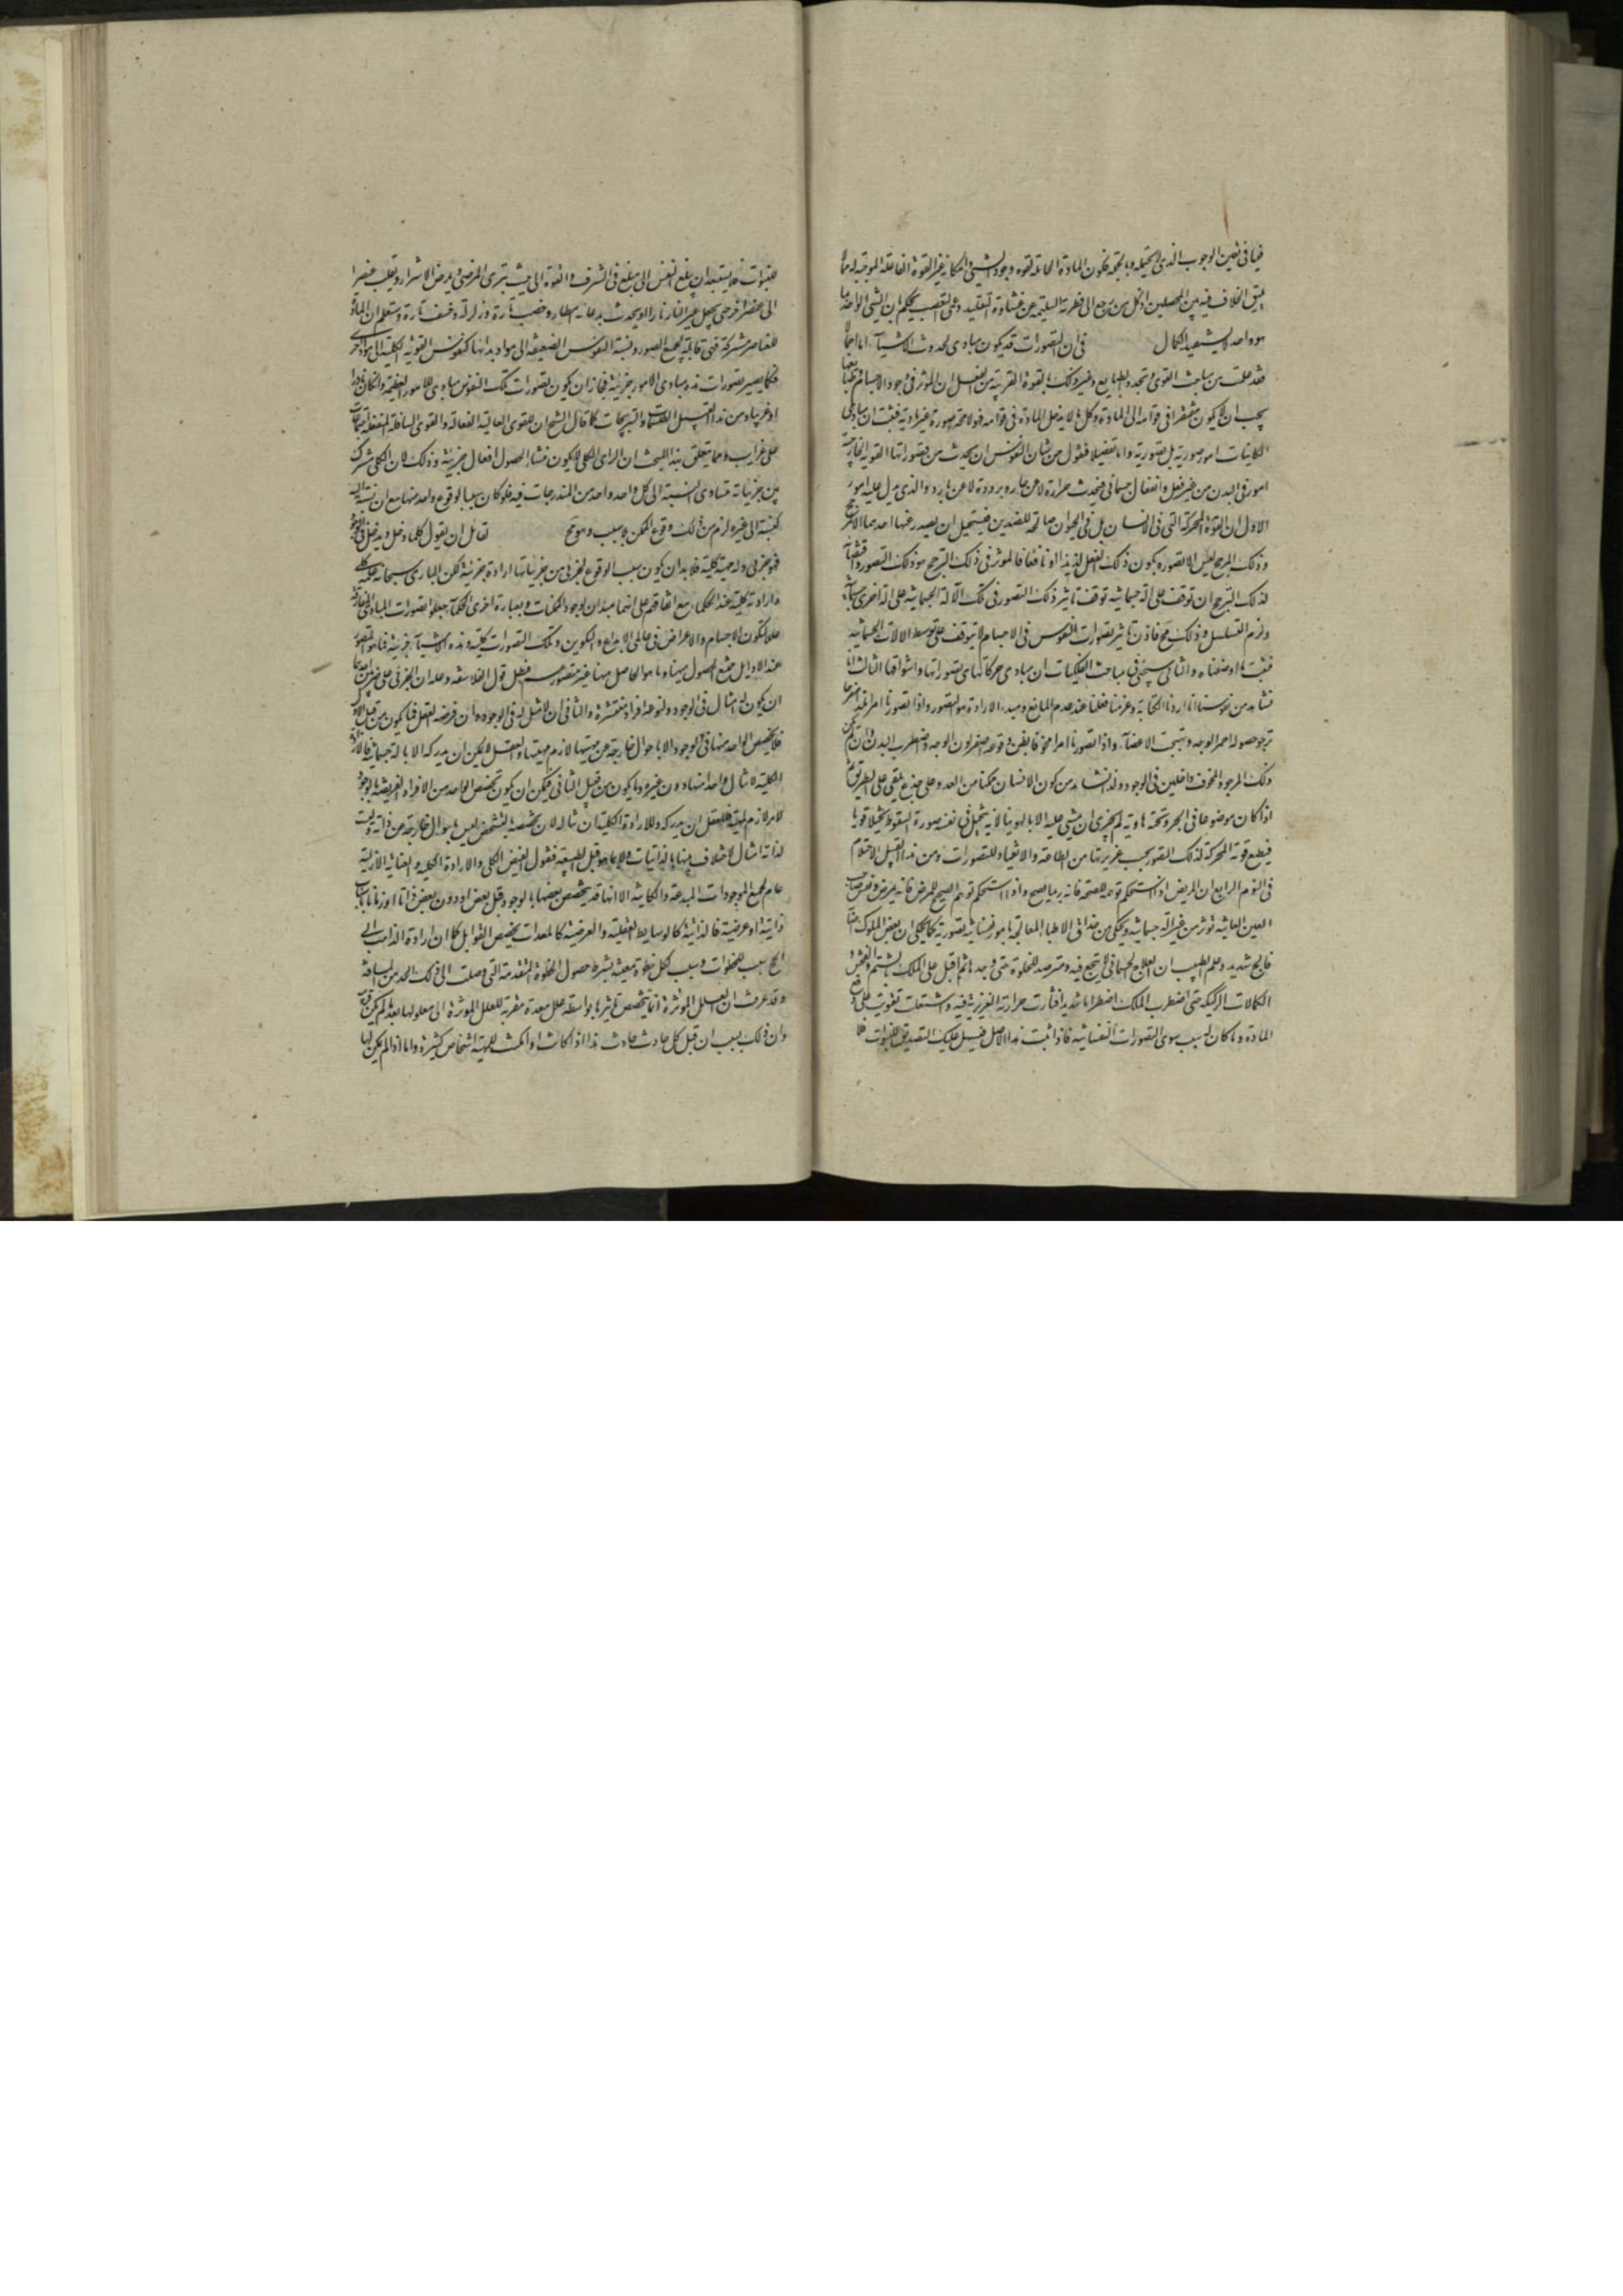 فيا في تعين الوجوب الذي الحيثية وبالجملة فيكون المادة الحاملة لقوة وجود الشيء وامكانه غير القوة الفاعلة الموجبة له فلا
يبقى الخلاف فيه بين المحصلين اذ كل من رجع الى فطرته السليمة عن غشاوة التقليد وعمى التعصب يحكم بان الشيء الواحد بما
هو واحد لا يستفيد الكمال في ان التصورات قد يكون مبادي لحدوث الاشياء اما اجمالا
فقد علمت من مباحث القوى وتجدد الطبايع وغير ذلك بالقوة القريبة من الفعل ان المؤثر في وجود الاجسام وطبايعها
يجب ان لا يكون مفتقرا في قوامه الى المادة وكل ما لا يدخل المادة في قوامه فهو لا محة صورة غير مادية فثبت ان مبادي
الكاينات امور صورية بل تصورية واما تفصيلا فنقول من شان النفوس ان يحدث من تصوراتها القوية الجازمة
امور في البدن من غير فعل وانفعال جسماني فيحدث حرارة لا عن حار وبرودة لا عن بارد والذي يدل عليه امور
الاول ان القوة المحركة التي في الانسان بل في الحيوان صالحة للضدين فيستحيل ان يصدر عنها احدهما الا لمرجح
وذلك المرجح ليس الا تصوره بكون ذلك الفعل لذيذا او نافعا فالمؤثر في ذلك الترجيح هو ذلك التصور
لذلك الترجيح ان توقف على آلة جسمانية توقف تاثير ذلك التصور في تلك الآلة الجسمانية على آلة اخرى جسمانية
ولزم التسلسل وذلك مح فاذن تاثير تصورات النفوس في الاجسام لا يتوقف على توسط الالات الجسمانية
فثبت ما ادعيناه والثاني سيجئ في مباحث الفلكيات ان مبادي حركاتها هي تصوراتها واشواقها الثالث انا
نشاهد من نفوسنا انا اذا اردنا الكتابة وعزمنا فعلنا عند عدم المانع ومبدء الارادة هو التصور واذا تصورنا امرا
نرجو حصوله احمر الوجه وتهيجت الاعضاء واذا تصورنا امرا مخوفا يقن وقوعه اصفر لون الوجه واضطرب البدن وان لم يكن
ذلك المرجو والمخوف داخلين في الوجود وقد نشاهد من كون الانسان متمكنا من العدو على جذع يلقى على الطريق ثم
اذا كان موضوعا في الجسر وتحته هاوية لم يجترئ ان يمشي عليه الا بالهوينا لانه يتخيل في نفسه صورة السقوط تخيلا قويا
فيطيع قوته المحركة لذلك التصور بحسب غريزتها من الطاعة والانقياد للتصورات ومن هذا القبيل الاحتلام
في النوم الرابع ان المريض اذا استحكم توهمه للصحة فانه ربما يصح واذا استحكم توهم الصحيح للمرض فانه يمرض
العين العاينة تؤثر من غير آلة جسمانية ويحكى من حذاق الاطباء المعالجة بامور نفسانية تصورية كما يحكى ان بعض الملوك اصابه
فالج شديد وعلم الطبيب ان العلاج الجسماني لا ينجع فيه فترصد للخلوة حتى وجدها ثم اقبل على الملك بالشتم والفحش و
الكلمات الركيكة حتى اضطرب الملك اضطرابا شديدا فثارت حرارته الغريزية فيه واشتعلت تقويت على دفع
المادة وما كان له سبب سوى التصورات النفسانية فاذا ثبت هذا الاصل فيسهل عليك التصديق بالنبوات فلا
للنبوات فلا يستبعد ان يبلغ النفس الى مبلغ في الشرف والقوة الى حيث يبرئ المرضى ويمرض الاشرار ويقلب عنصرا
الى عنصر اخر حتى يجعل غير النار نارا او يحدث بدعائه امطار وخصب تارة وزلزلة وخسف تارة وستعلم ان المادة
للعناصر مشتركة فهي قابلة لجميع الصور ونسبة النفوس الضعيفة الى مواد بدانها كنفوس القوية الكلية الى مواد اخرى
فكما يصير تصورات هذه مبادي الامور جزئية فجاز ان يكون تصورات تلك النفوس مبادي للامور العظيمة وان كان نادرا
او غريبا ومن هذا القبيل الطلسمات والنيرنجات كما قال الشيخ ان للقوى العالية الفعالة والقوى السافلة المنفعلة اجتماعات
على غرايب ومما يتعلق بهذا المبحث ان الراي الكلي لا يكون منشا لحصول افعال جزئية وذلك لان الكلي مشترك
بين جزئياته متساوي النسبة الى كل واحد واحد من المندرجات فيه فلو كان سببا لوقوع واحد منها مع ان نسبته اليه
كنسبته الى غيره لزم من ذلك وقوع الممكن بلا سبب وهو مح لقائل ان يقول كلما دخل ويدخل في الوجود
فهو جزئي وله ماهية كلية فلا بد ان يكون سبب الوقوع لجزئي من جزئياتها ارادة جزئية لكن الباري سبحانه علمه كلي
وارادته كلية عند الحكماء مع اتفاقهم على انهما مبدان لوجود الممكنات وبعبارة اخرى الحكماء جعلوا تصورات المبادي المفارقة
عللا لتكون الاجسام والاعراض في عالمي الابداع والتكوين وتلك التصورات كلية وهذه الاشياء جزئية فما هو المتصور
عند الاوايل ممتنع الحصول هيهنا وما هو الحاصل هيهنا غير متصور فبطل قول الفلاسفة وحله ان الجزئي على ضربين احدهما
ان يكون له امثال في الوجود ولنوعه افراد منتشرة والثاني ان لا مثل له في الوجود وان فرضه العقل فما يكون من قبيل الاول
فلا يخصص الواحد منها في الوجود الا باحوال خارجة عن مهيتها ولازم مهيتها والعقل لا يمكن ان يدركه الا بآلة جسمانية فالارادة
الكلية لا تنال واحدا منها دون غيره وما يكون من قبيل الثاني فيمكن ان يكون تخصص الواحد من الافراد الفرضية بالوجود
لامر لازم لمهيته فللعقل ان يدركه وللارادة الكلية ان تناله لان تخصصه وتشخصه ليس باحوال خارجة عن ذاته وليست
لذاته امثال لاختلاف بينها بالذاتيات ولا بما هو قبل الطبيعة فنقول الفيض الكلي والارادة الكلية والعناية الازلية
عام لجميع الموجودات المبدعة والكاينة الا انها قد يخصص بعضها بالوجود قبل بعض او دون بعض ذاتا او زمانا باسباب
ذاتية او عرضية فالذاتية كالوسايط العقلية والعرضية كالمعدات يخصص القوابل كما ان ارادة الذاهب الى
الحج سبب للخطوات وسبب لكل خطوة معينة بشرط حصول الخطوة المتقدمة التي وصلت الى ذلك الحد من المسافة
وقد عرفت ان العلل المؤثرة انما يتخصص تاثيرها بواسطة علل معدة مقربة للعلل المؤثرة الى معلولها بعد ما لم يكن قريبة
وان ذلك بسبب ان قبل كل حادث حادث هذا اذا كانت او امكنت للمهية اشخاص كثيرة واما اذا لم يكن لها